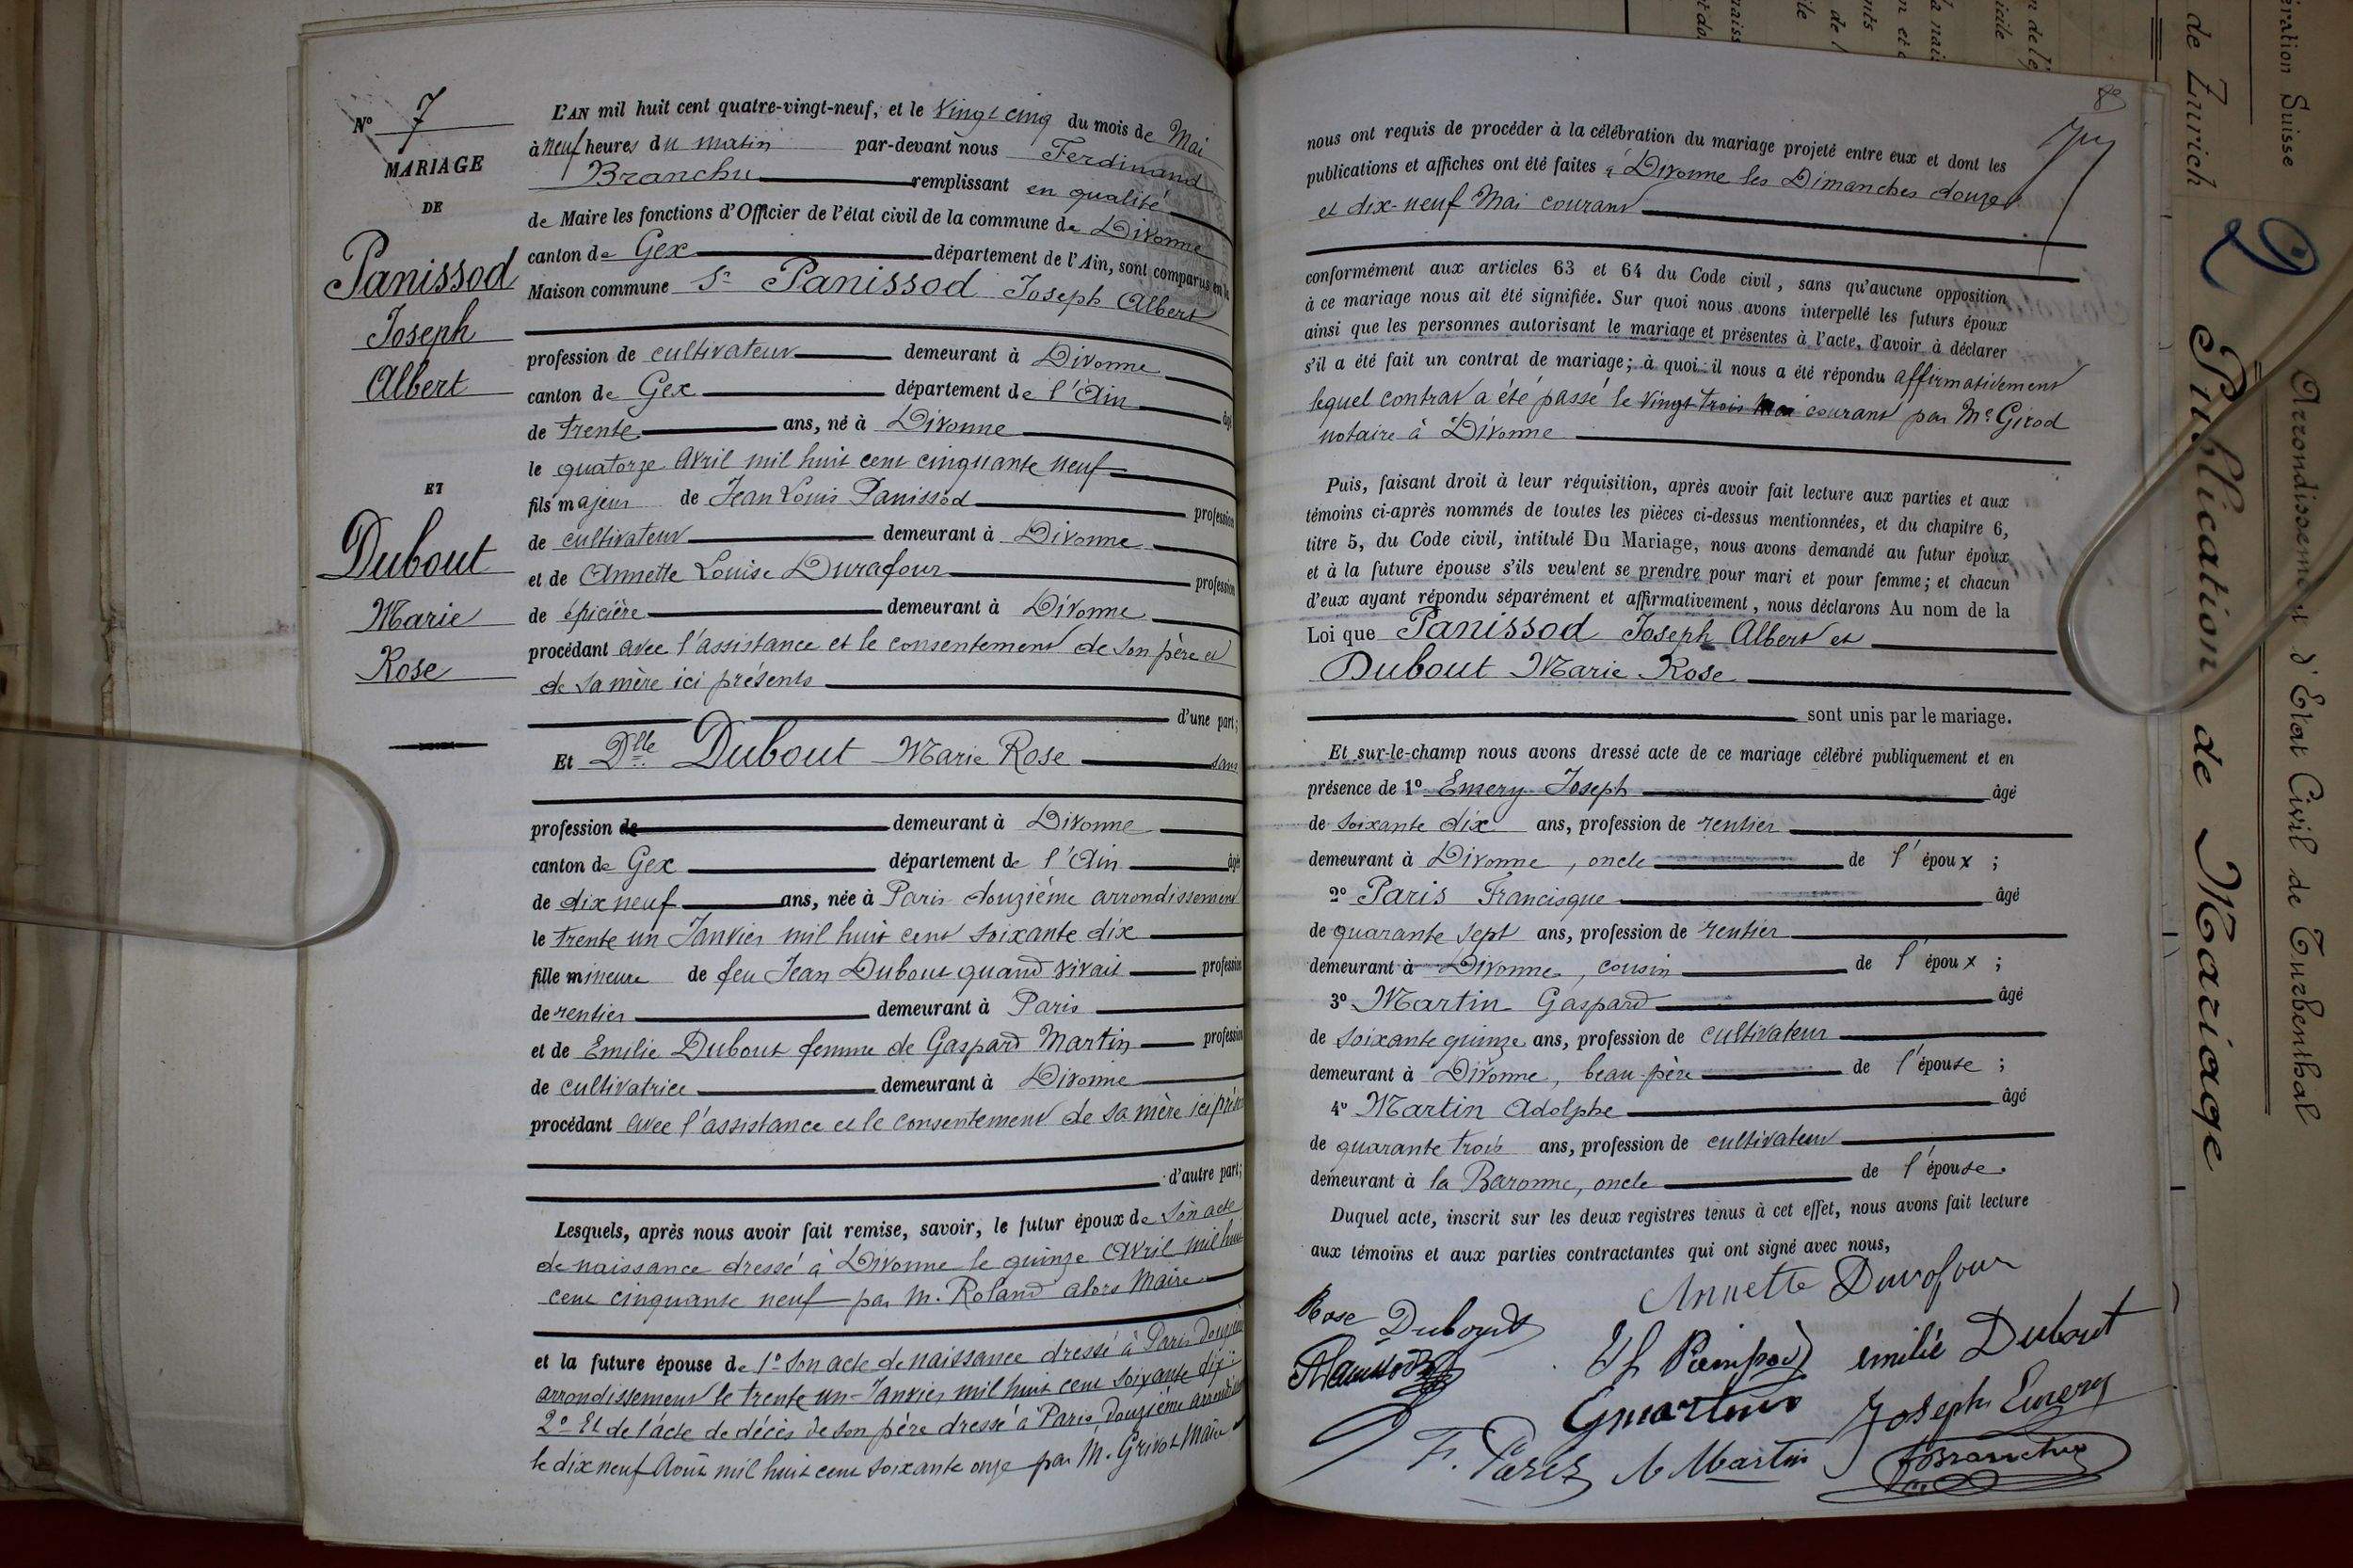 N° 7
MARIAGE
DE
Panissod
Joseph
Albert
ET
Dubout
Marie
Rose
L'AN mil huit cent quatre-vingt-neuf, et le Vingt cinq du mois de Mai
à neuf heures du matin par-devant nous Ferdinand
Branchu remplissant en qualité
de Maire les fonctions d'Officier de l'état civil de la commune de Divonne
canton de Gex département de l'Ain, sont comparus en la
Maison commune Sr Panissod Joseph Albert
profession de cultivateur demeurant à Divonne
canton de Gex département de l'Ain âgé
de trente ans, né à Divonne
le quatorze Avril mil huit cent cinquante neuf
fils majeur de Jean Louis Panissod profession
de cultivateur demeurant à Divonne
et de Annette Louise Durafour profession
de épicière demeurant à Divonne
procédant avec l'assistance et le consentement de son père et
de sa mère ici présents
d'une part;
Et Dlle Dubout Marie Rose sans
profession de demeurant à Divonne
canton de Gex département de l'Ain âgée
de dix neuf ans, née à Paris douzième arrondissement
le trente un Janvier mil huit cent soixante dix
fille mineure de feu Jean Dubout quand vivait profession
de rentier demeurant à Paris
et de Emilie Dubout femme de Gaspard Martin profession
de cultivatrice demeurant à Divonne
procédant avec l'assistance et le consentement de sa mère ici
d'autre part;
Lesquels, après nous avoir fait remise, savoir, le futur époux de son acte
de naissance dressé à Divonne le quinze Avril mil huit
cent cinquante neuf par M. Roland alors Maire
et la future épouse de 1° son acte de naissance dressé à Paris douzième
arrondissement le trente un Janvier mil huit cent soixante dix
2° Et de l'acte de décès de son père dressé à Paris douzième
le dix neuf Août mil huit cent soixante onze par M. Grivot Maire
89
nous ont requis de procéder à la célébration du mariage projeté entre eux et dont les
publications et affiches ont été faites à Divonne les Dimanches douze
et dix-neuf Mai courant
conformément aux articles 63 et 64 du Code civil, sans qu'aucune opposition
à ce mariage nous ait été signifiée. Sur quoi nous avons interpellé les futurs époux
ainsi que les personnes autorisant le mariage et présentes à l'acte, d'avoir à déclarer
s'il a été fait un contrat de mariage; à quoi il nous a été répondu affirmativement
lequel contrat a été passé le vingt trois Mai courant par Me Girod
notaire à Divonne
Puis, faisant droit à leur réquisition, après avoir fait lecture aux parties et aux
témoins ci-après nommés de toutes les pièces ci-dessus mentionnées, et du chapitre 6,
titre 5, du Code civil, intitulé Du Mariage, nous avons demandé au futur époux
et à la future épouse s'ils veulent se prendre pour mari et pour femme; et chacun
d'eux ayant répondu séparément et affirmativement, nous déclarons Au nom de la
Loi que Panissod Joseph Albert et
Dubout Marie Rose
sont unis par le mariage.
Et sur-le-champ nous avons dressé acte de ce mariage célébré publiquement et en
présence de 1° Emery Joseph âgé
de soixante dix ans, profession de rentier
demeurant à Divonne, oncle de l'époux;
2° Paris Francisque âgé
de quarante sept ans, profession de rentier
demeurant à Divonne, cousin de l'époux;
3° Martin Gaspard âgé
de soixante quinze ans, profession de cultivateur
demeurant à Divonne, beau-père de l'épouse;
4° Martin Adolphe âgé
de quarante trois ans, profession de cultivateur
demeurant à la Baronne, oncle de l'épouse.
Duquel acte, inscrit sur les deux registres tenus à cet effet, nous avons fait lecture
aux témoins et aux parties contractantes qui ont signé avec nous,
Annette Durafour
Rose Dubout
emilie Dubout
Joseph Emery
F. Paris A Martin
Branchu
de Zurich
2 Publication de Mariage
ération Suisse
Arrondissement d'Etat Civil de Turbenthal